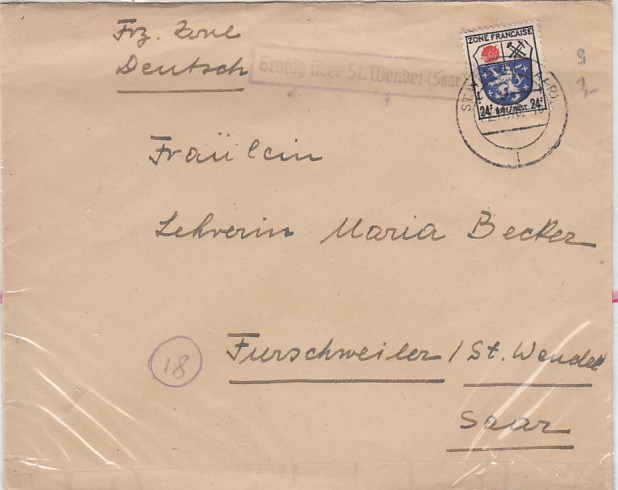 Frz. Zone
Deutsch
über St. Wendel (Saar)
ZONE FRANÇAISE
24 24
1
9
3
Fräulein
Lehrerin Maria Becker
18
Furschweiler / St. Wendel
Saar